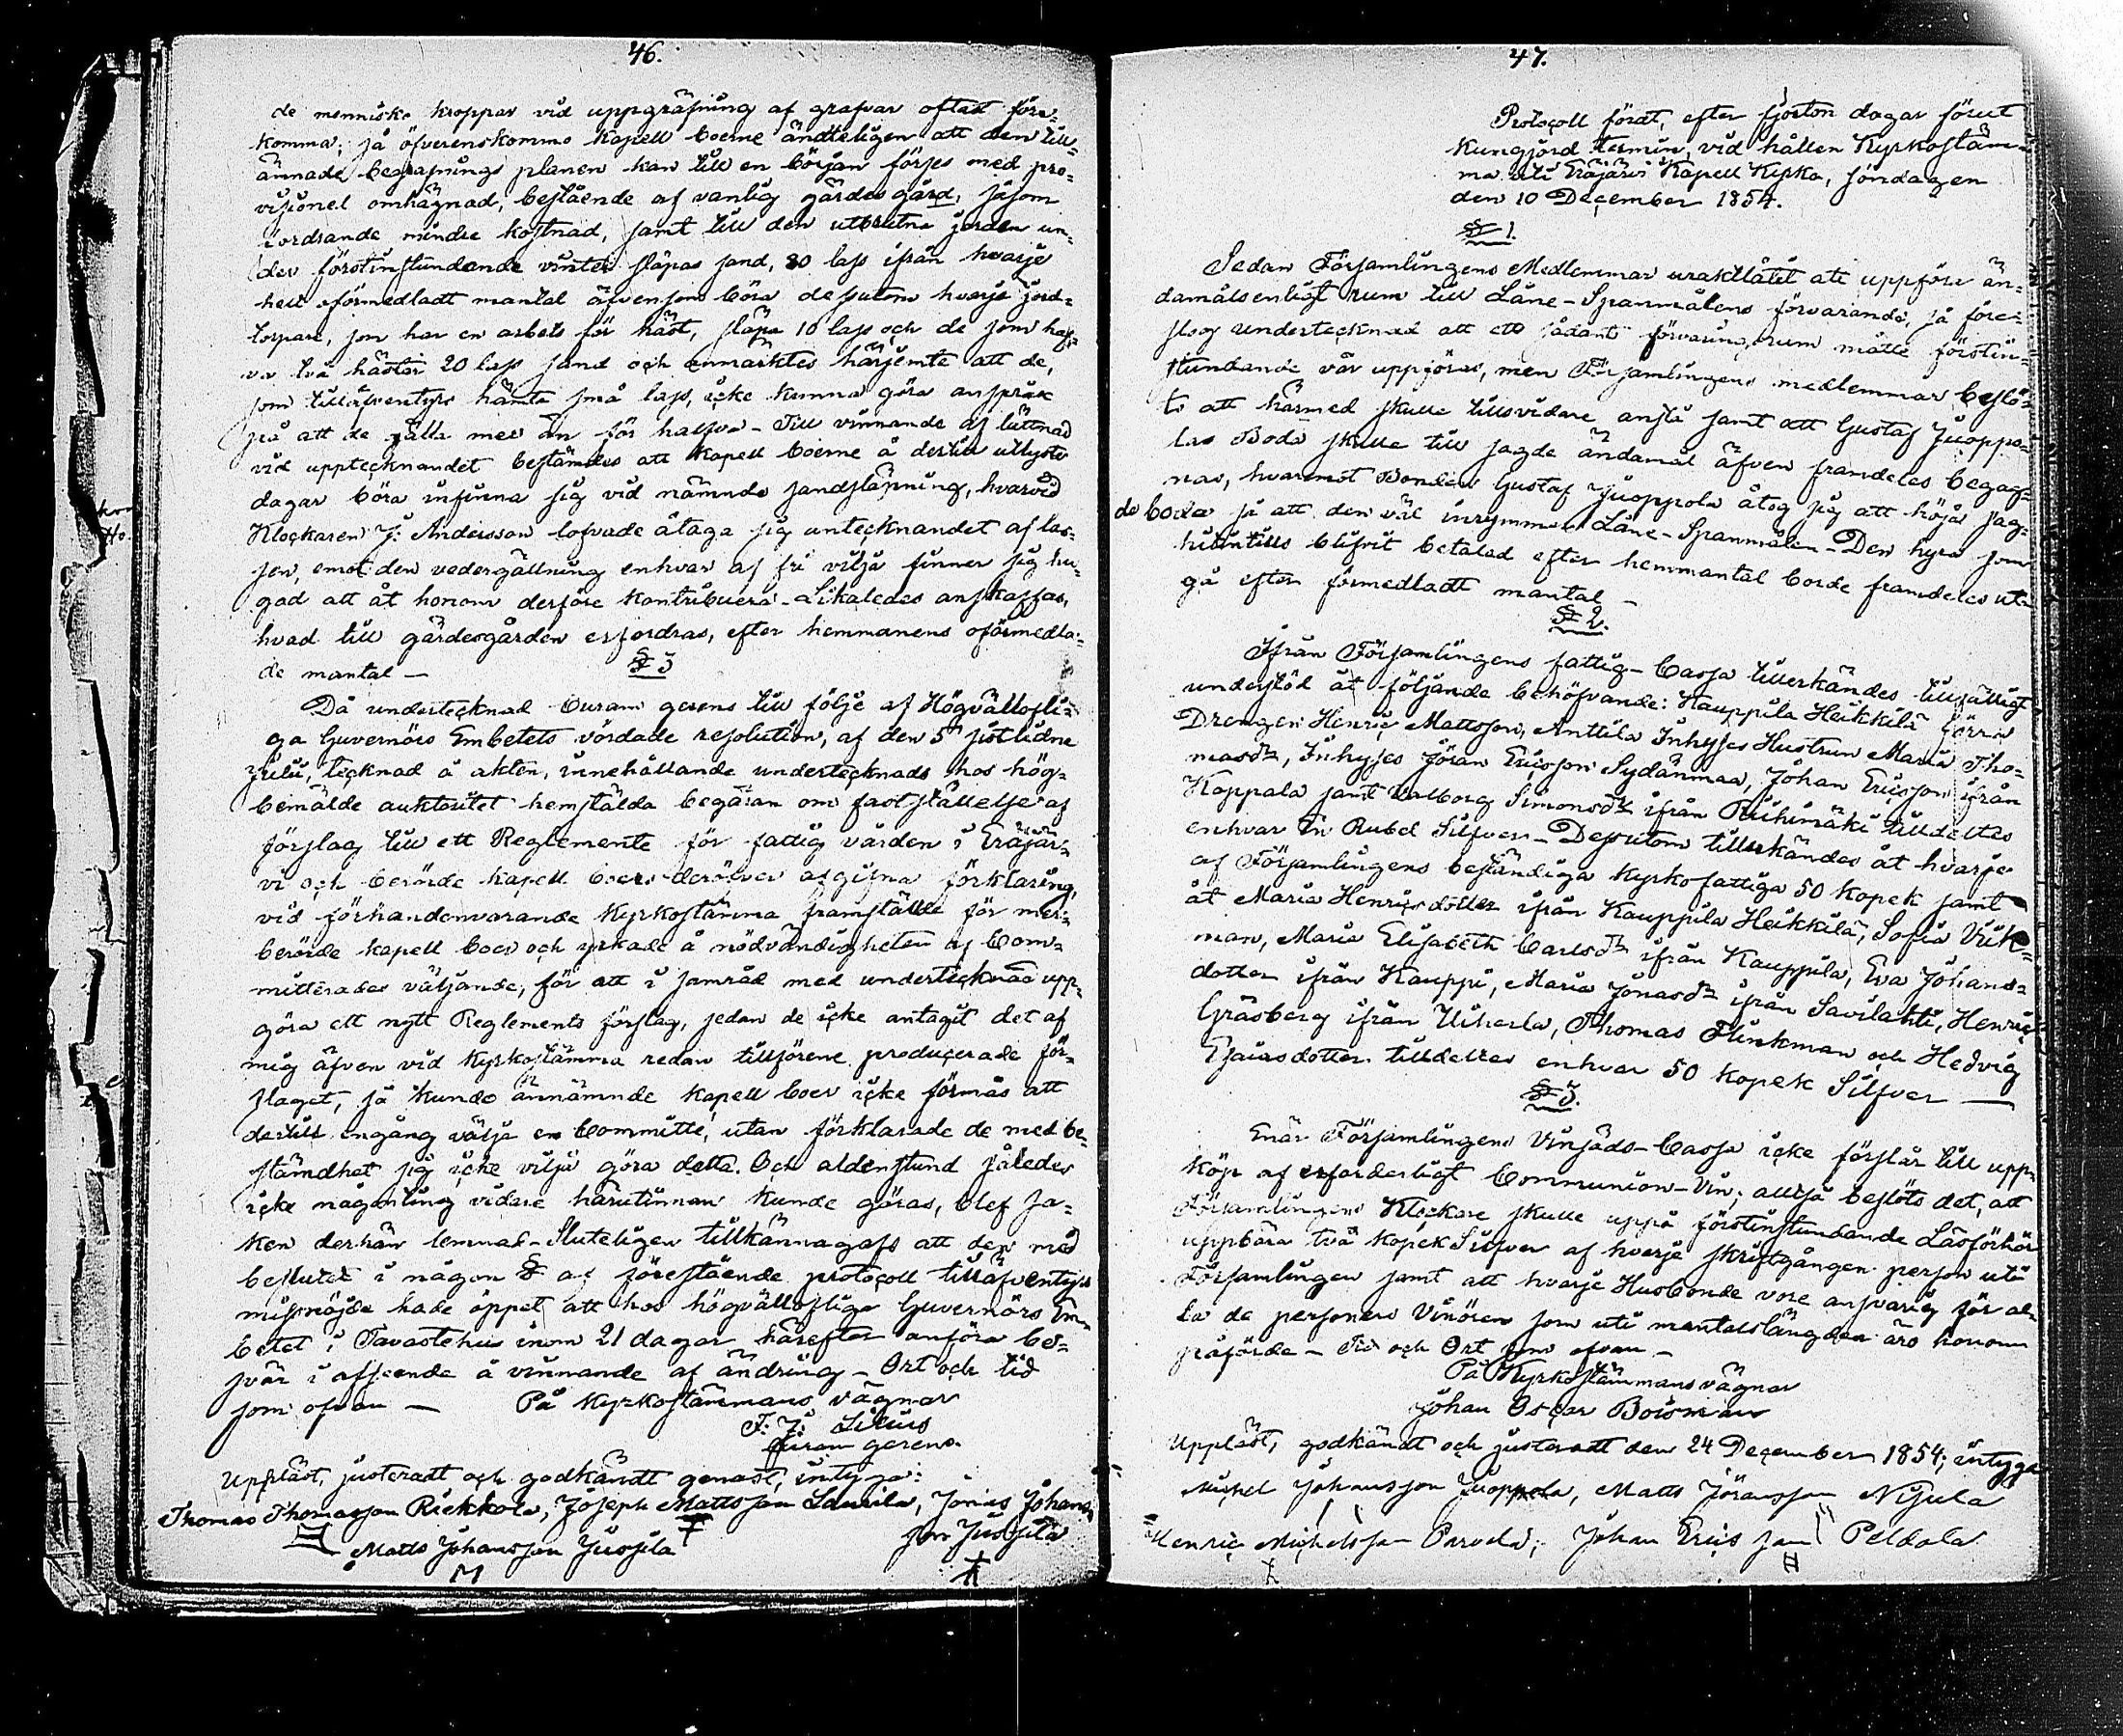 46.
de menniske kroppar vid uppgräfning af grafvar oftast före-
komma; så öfverenskommo Kapell boerne ändteligen att den till-
ämnade begrafnings planen kan till en början förses med pro-
visionel omhägnad, bestående af vanlig gärdes gård, såsom
fordrande mindre kostnad, samt till den utbrutna jorden un-
der förstinstundande vinter släpas sand, 30 lass ifrån hvarje
helt oförmedladt mantal äfvensom böra dessutom hvarje jord-
torpare, som har en arbets för häst, släpa 10 lass och de som haf-
va två hästar 20 lass sand och anmärktes härjemte att de,
som tilläfventyrs hämta små lass, icke kunna göra anspråk
på att de gälla mer än för halfva - Till vinnande af lättnad
vid upptecknandet bestämdes att Kapell boerne å dertill utlyste
dagar böra infinna sig vid nämnde sandsläpning, hvarvid
Klockaren J: Andersson lofvade åtaga sig antecknandet af las-
sen, emot den vedergällning enhvar af fri vilja finner sig hu-
gad att åt honom derföre kontribuera - Likaledes anskaffas,
hvad till gärdesgården erfordras, efter hemmanens oförmedla-
de mantal -
§ 3
Då undertecknad Curam gerens till följe af Högvällofli-
ga Guvernörs Embetets vördade resolution, af den 5 sistlidne
Julii, tecknad å akten, innehållande undertecknads hos hög-
bemälde auktoritet hemstälda begäran om fastställelse af
förslag till ett Reglemente för fattig vården i Eräjär-
vi och berörde kapell boers deröfver afgifna förklaring,
vid förhandenvarande Kyrkostämma framställde för mer-
berörde kapell boer och yrkade å nödvändigheten af Com-
mitterades väljande, för att i samråd med undertecknad upp-
göra ett nytt Reglements förslag, sedan de icke antagit det af
mig äfven vid Kyrkostämma redan tillförene producerade för-
slaget, så kunde ännämnde kapell boer icke förmås att
dertill engång välja en Committé, utan förklarade de med be-
stämdhet sig icke vilja göra detta. Och aldenstund således
icke någonting vidare härutinnan kunde göras, blef sa-
ken derhän lemnad - Sluteligen tillkännagafs att den med
beslutet i någon § af förestående protocoll tilläfventyrs
missnöjde hade öppet att hos högvällofliga Guvernörs Em-
betet i Tavastehus inom 21 dagar härefter anföra be-
svär i afseende å vinnande af ändring - Ort och tid
som ofvan - På Kyrkostämmans vägnar
F. J. Lilius
Curam gerens.
Uppläst, justeradt och godkändt genast, intyga:
Thomas Thomasson Rickkola, Joseph Mattsson Laurila, Jonas Johans-
son Jussila
Matts Johansson Jussila
M
47.
Protocoll fördt, efter fjorton dagar förut
Kungjord termin, vid hållen Kyrkostäm-
ma uti Eräjärvi Kapell Kyrka, söndagen
den 10 December 1854.
§ 1.
Sedan Församlingens Medlemmar uraktlåtit att uppföra än-
damålsenligt rum till Låne-Spanmålens förvarande, så före-
slog undertecknad att ett sådant förvaringsrum måtte förstin-
stundande vår uppföras, men Församlingens medlemmar beslö-
to att härmed skulle tillsvidare anstå samt att Gustaf Juoppo-
las Boda skulle till sagde ändamål äfven framdeles begag-
nas, hvaremot Bonden Gustaf Juoppola åtog sig att höja sag-
de boda så att den väl inrymmer Låne-Spanmålen - Den hyra som
hittintills blifvit betalad efter hemmantal borde framdeles ut-
gå efter förmedladt mantal -
§ 2.
Ifrån Församlingens fattig-Cassa tillerkändes tillfälligt
understöd åt följande behöfvande: Kauppila Heikkilä förra
Drengen Henric Mattsson, Anttila Inhyses Hustrun Maria Tho-
masdr, Inhyses Göran Ericsson Sydänmaa, Johan Ericsson ifrån
Koppala samt Valborg Simonsdr ifrån Riihimäki tilldeltes
enhvar En Rubel Silfver - Dessutom tillerkändes åt hvarje
af Församlingens beständiga Kyrkofattiga 50 Kopek samt
åt Maria Henricsdotter ifrån Kauppila Heikkilä, Sofia Vik-
man, Maria Elisabeth Carlsdr ifrån Kauppila, Eva Johans-
dotter ifrån Kauppi, Maria Jonasdr ifrån Savilahti, Henric
Gräsberg ifrån Uiherla, Thomas Flinkman och Hedvig
Esaiasdotter tilldeltes enhvar 50 Kopek Silfver -
§ 3.
Enär Församlingens Vinsäds-Cassa icke förslår till upp-
köp af erforderligt Communion-Vin; alltså beslöts det, att
Församlingens Klockare skulle uppå förstinstundande Läsförhör
uppbära två Kopek Silfver af hvarje skriftgången person uti
Församlingen samt att hvarje Husbonde vore ansvarig för al-
la de personers Vinören som uti mantalslängden äro honom
påförde - Tid och Ort som ofvan -
På Kyrkostämmans vägnar
Johan Oscar Boisman
Uppläst, godkändt och justeradt den 24 December 1854; intyga
Michel Johansson Juoppola, Matts Jöransson Nijula
Henric Michelsson Parvela, Johan Erics son Peldola